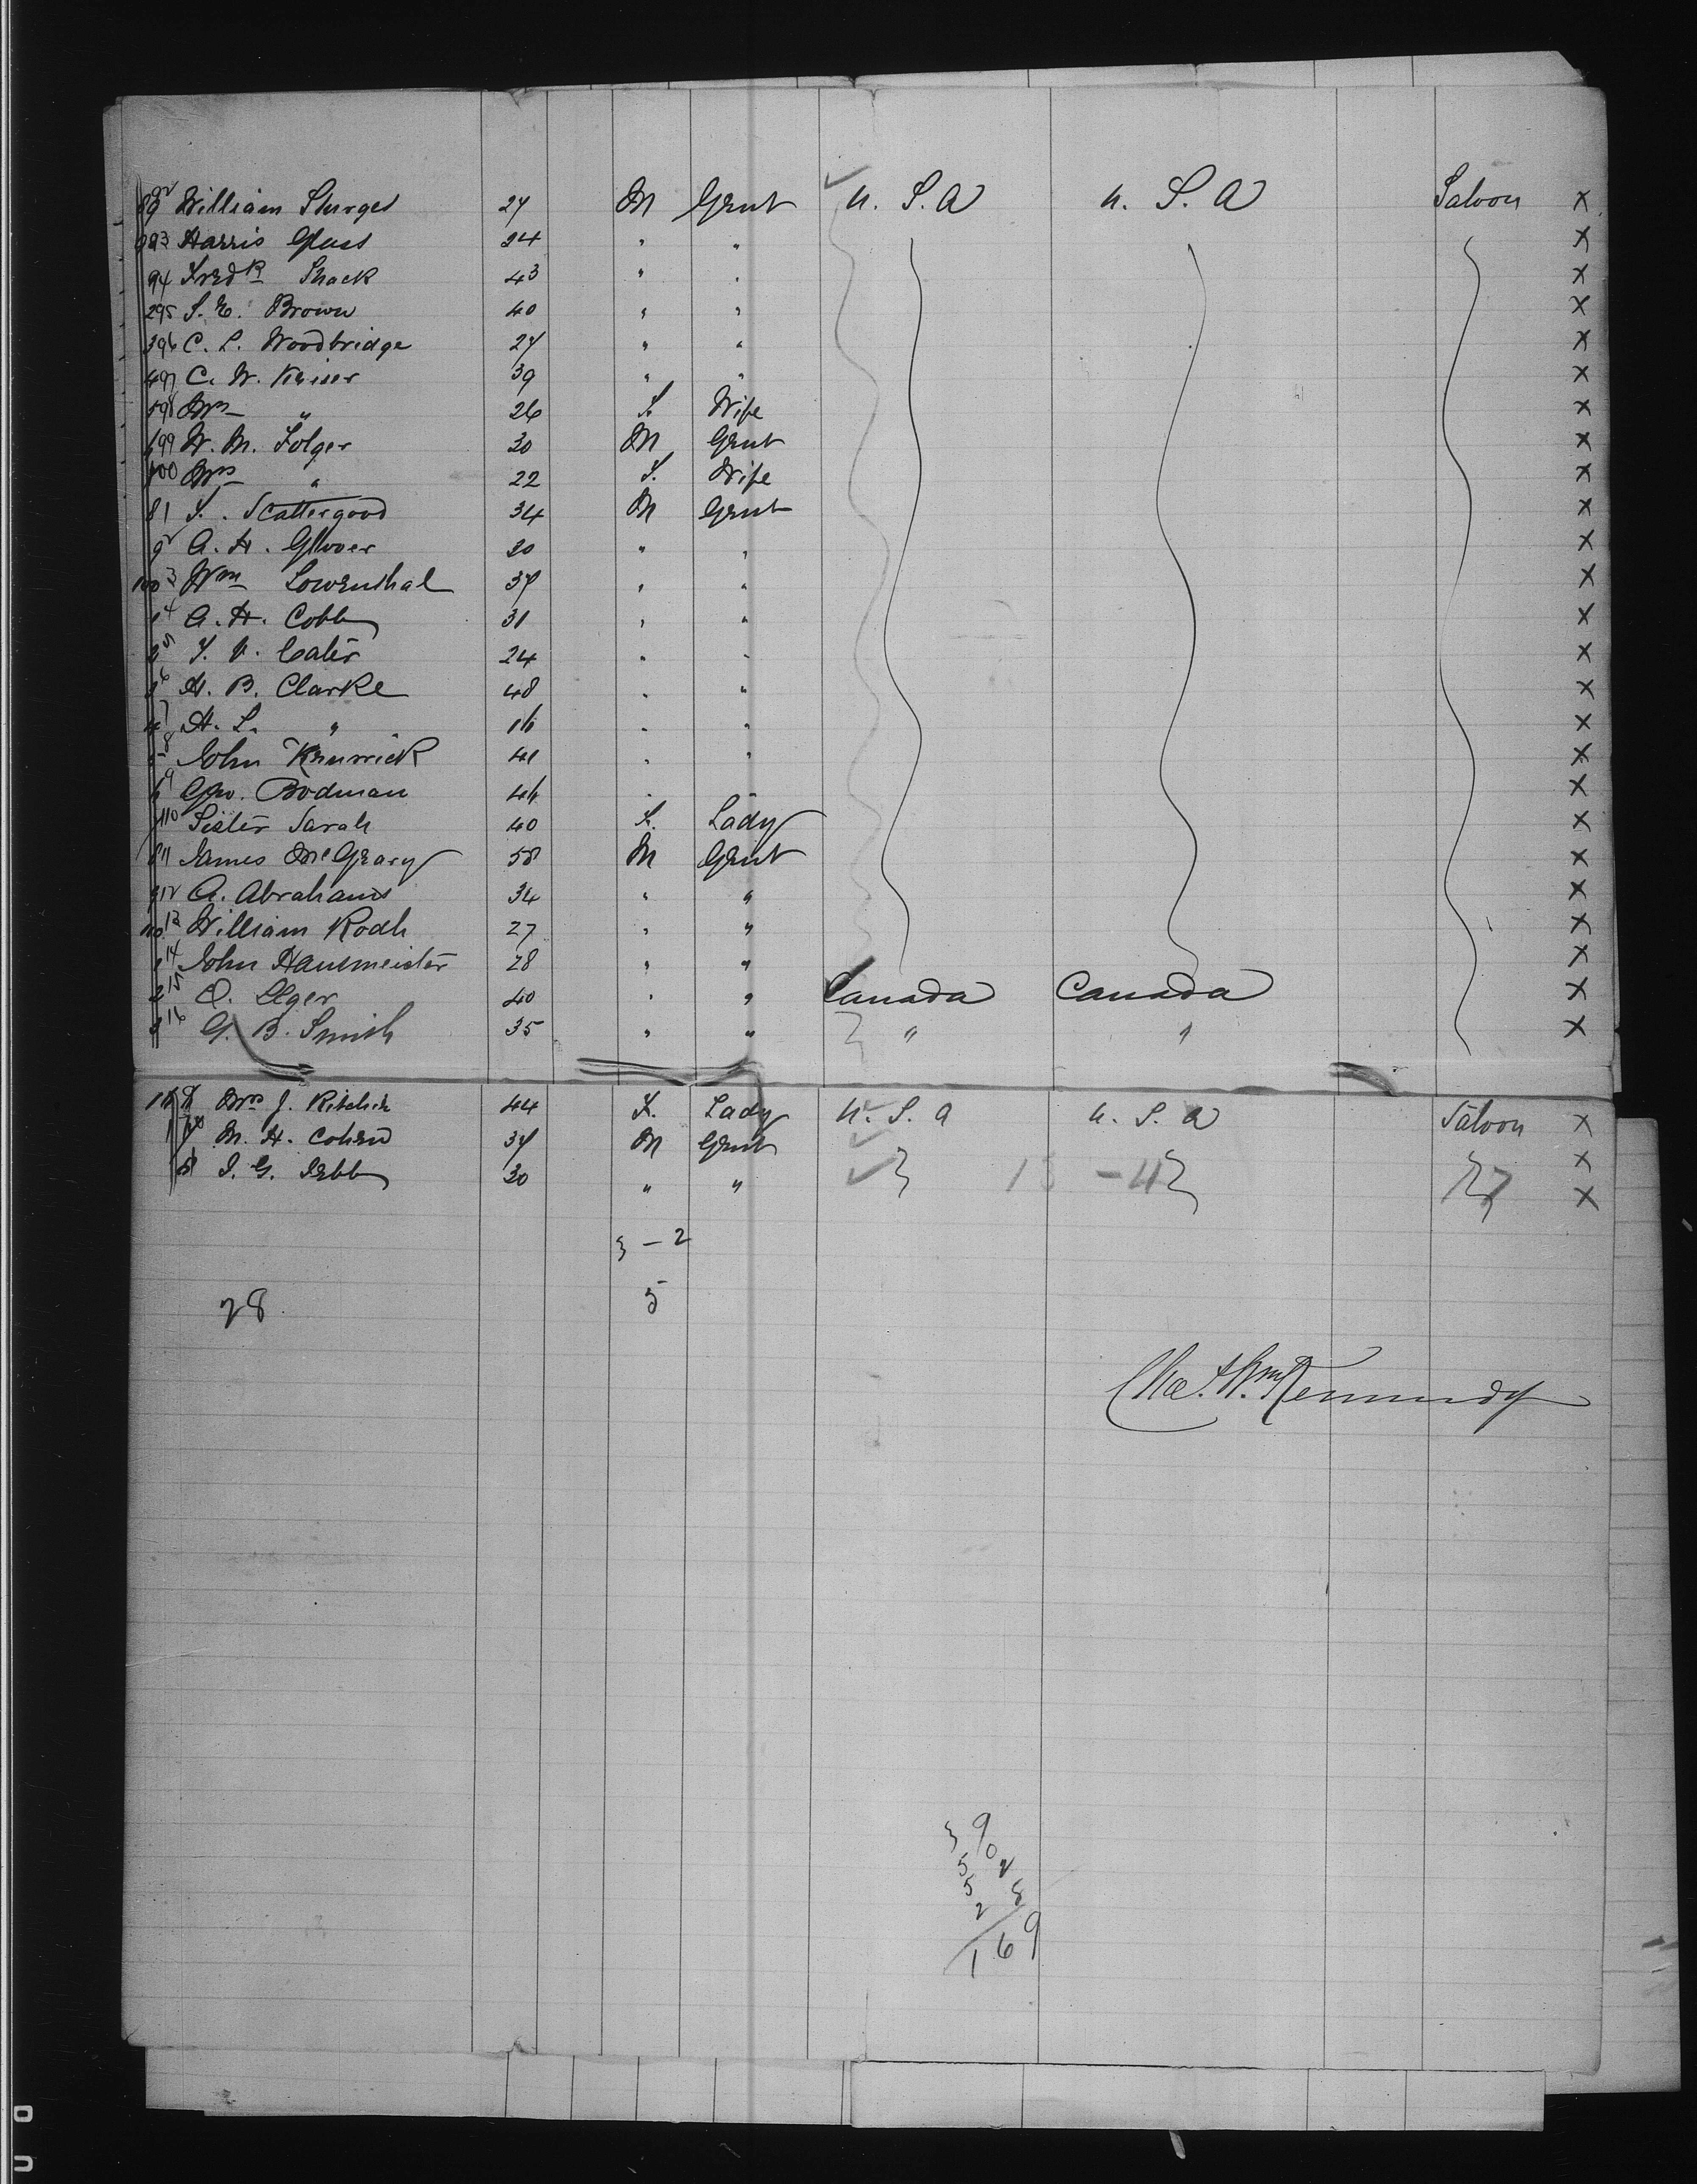 William Sturges 27 M Gent U. S. A U. S. A Saloon X
Harris Glass 24 " " X
94 Fredk Shack 43 " " X
295 S. E. Brown 40 " " X
396 C. L. Woodbridge 27 " " X
497 C. W. Kaiser 39 " " X
598 Mrs " 26 F. Wife X
699 W. M. Folger 30 M Gent X
100 Mrs " 22 F. Wife X
81 S. Scattergood 34 M Gent X
92 A. H. Glover 20 " " X
100 3 Wm Lowenthal 37 " " X
1 4 A. H. Cobb 31 " " X
2 5 T. V. Cater 24 " " X
3 6 H. B. Clarke 48 " " X
4 7 H. L. " 16 " " X
5 8 John Kenrick 41 " " X
6 9 Geo. Bodman 46 " " X
7 110 Sister Sarah 40 F. Lady X
8 11 James McGeary 58 M Gent X
9 12 A. Abrahams 34 " " X
110 13 William Rodh 27 " " X
1 14 John Hausmeister 28 " " X
2 15 O. Elger 40 " " Canada Canada X
3 16 G. B. Smith 35 " " " " X
Mrs J. Ritchie 44 F. Lady U. S. A U. S. A Saloon X
M. H. Cohen 37 M Gent X
30 " " 27 X
3 - 2
28 5
Kennedy
39
50
52
28
169